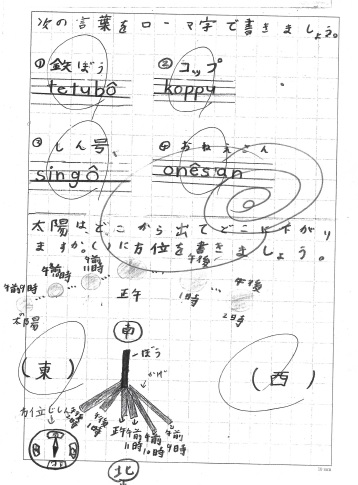 次の言葉をローマ字で書きましょう。
① 鉄ぼう ② コップ
tetubô koppu
③ しん号 ④ おねえさん
singô onêsan
太陽はどこから出てどこに下がり
ますか。( )に方位を書きましょう。
午前9時 午前10時 午前11時 正午 午後1時 午後2時
太陽
南
(東) ぼう (西)
かげ
方位じしん 午後2時 午後1時 正午 午前11時 午前10時 午前9時
北